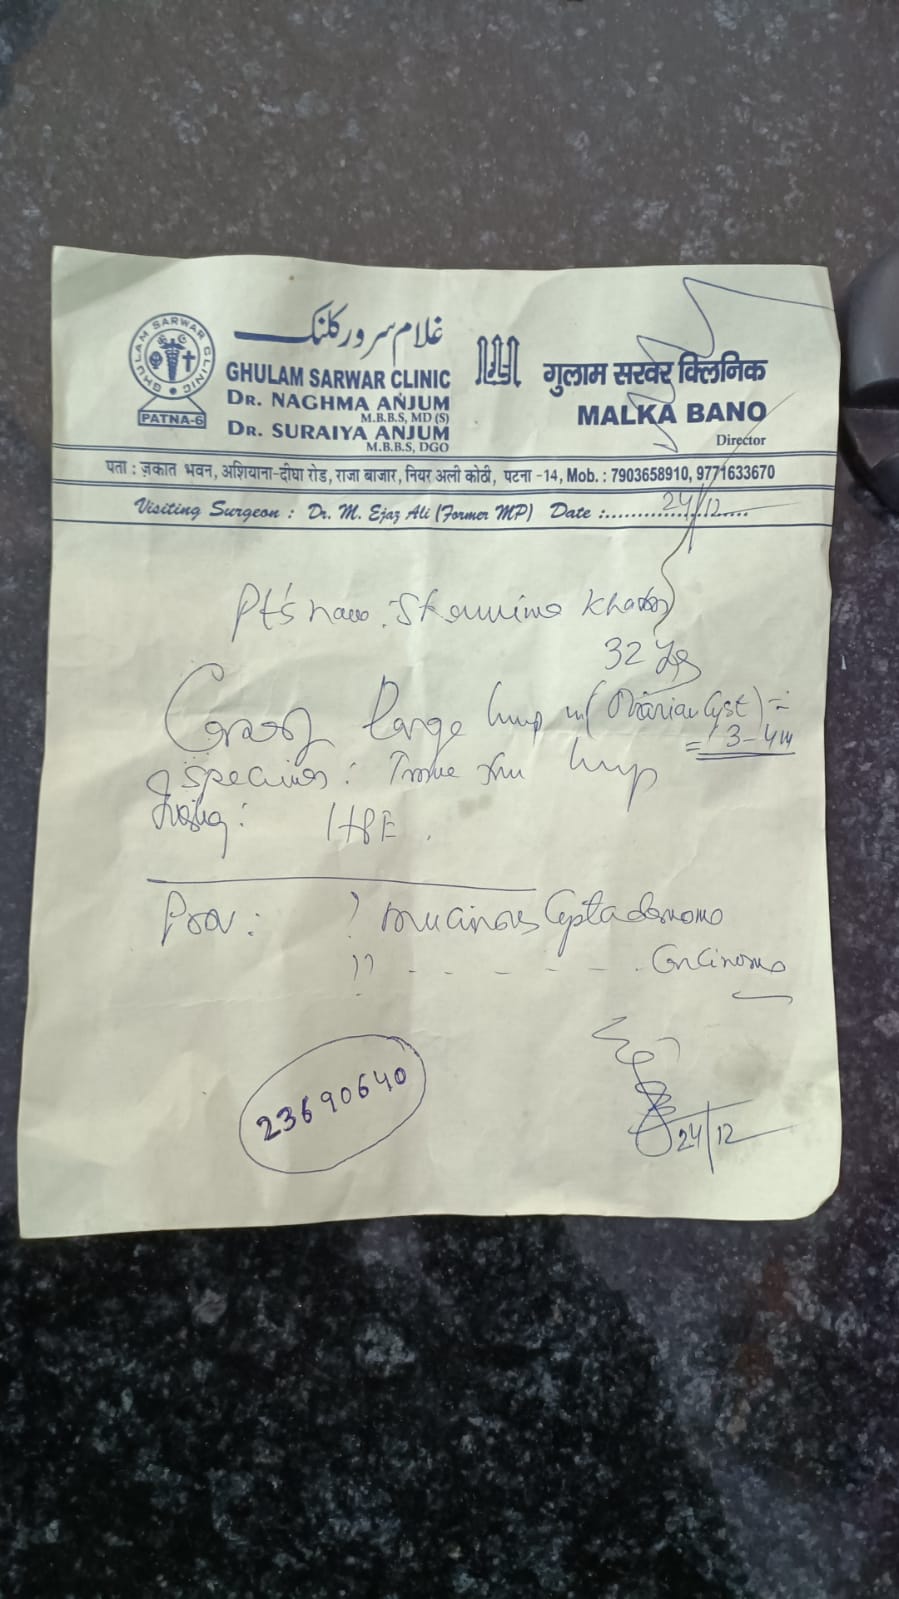 غلام سرور کلنک
GHULAM SARWAR CLINIC
PATNA-6
GHULAM SARWAR CLINIC
DR. NAGHMA ANJUM
M.B.B.S, MD (S)
DR. SURAIYA ANJUM
M.B.B.S, DGO
गुलाम सरवर क्लिनिक
MALKA BANO
Director
पता : ज़कात भवन, अशियाना-दीघा रोड, राजा बाजार, नियर अली कोठी, पटना -14, Mob. : 7903658910, 9771633670
Visiting Surgeon : Dr. M. Ejaz Ali (Former MP) Date : 24/12
Pt's
32
Large lump (Ovarian Cyst)
= 3-4
specimen : lump
HPE.
Prov : ? mucinous Cystadenoma
?? - - - - - - . Carcinoma
23690640
24/12